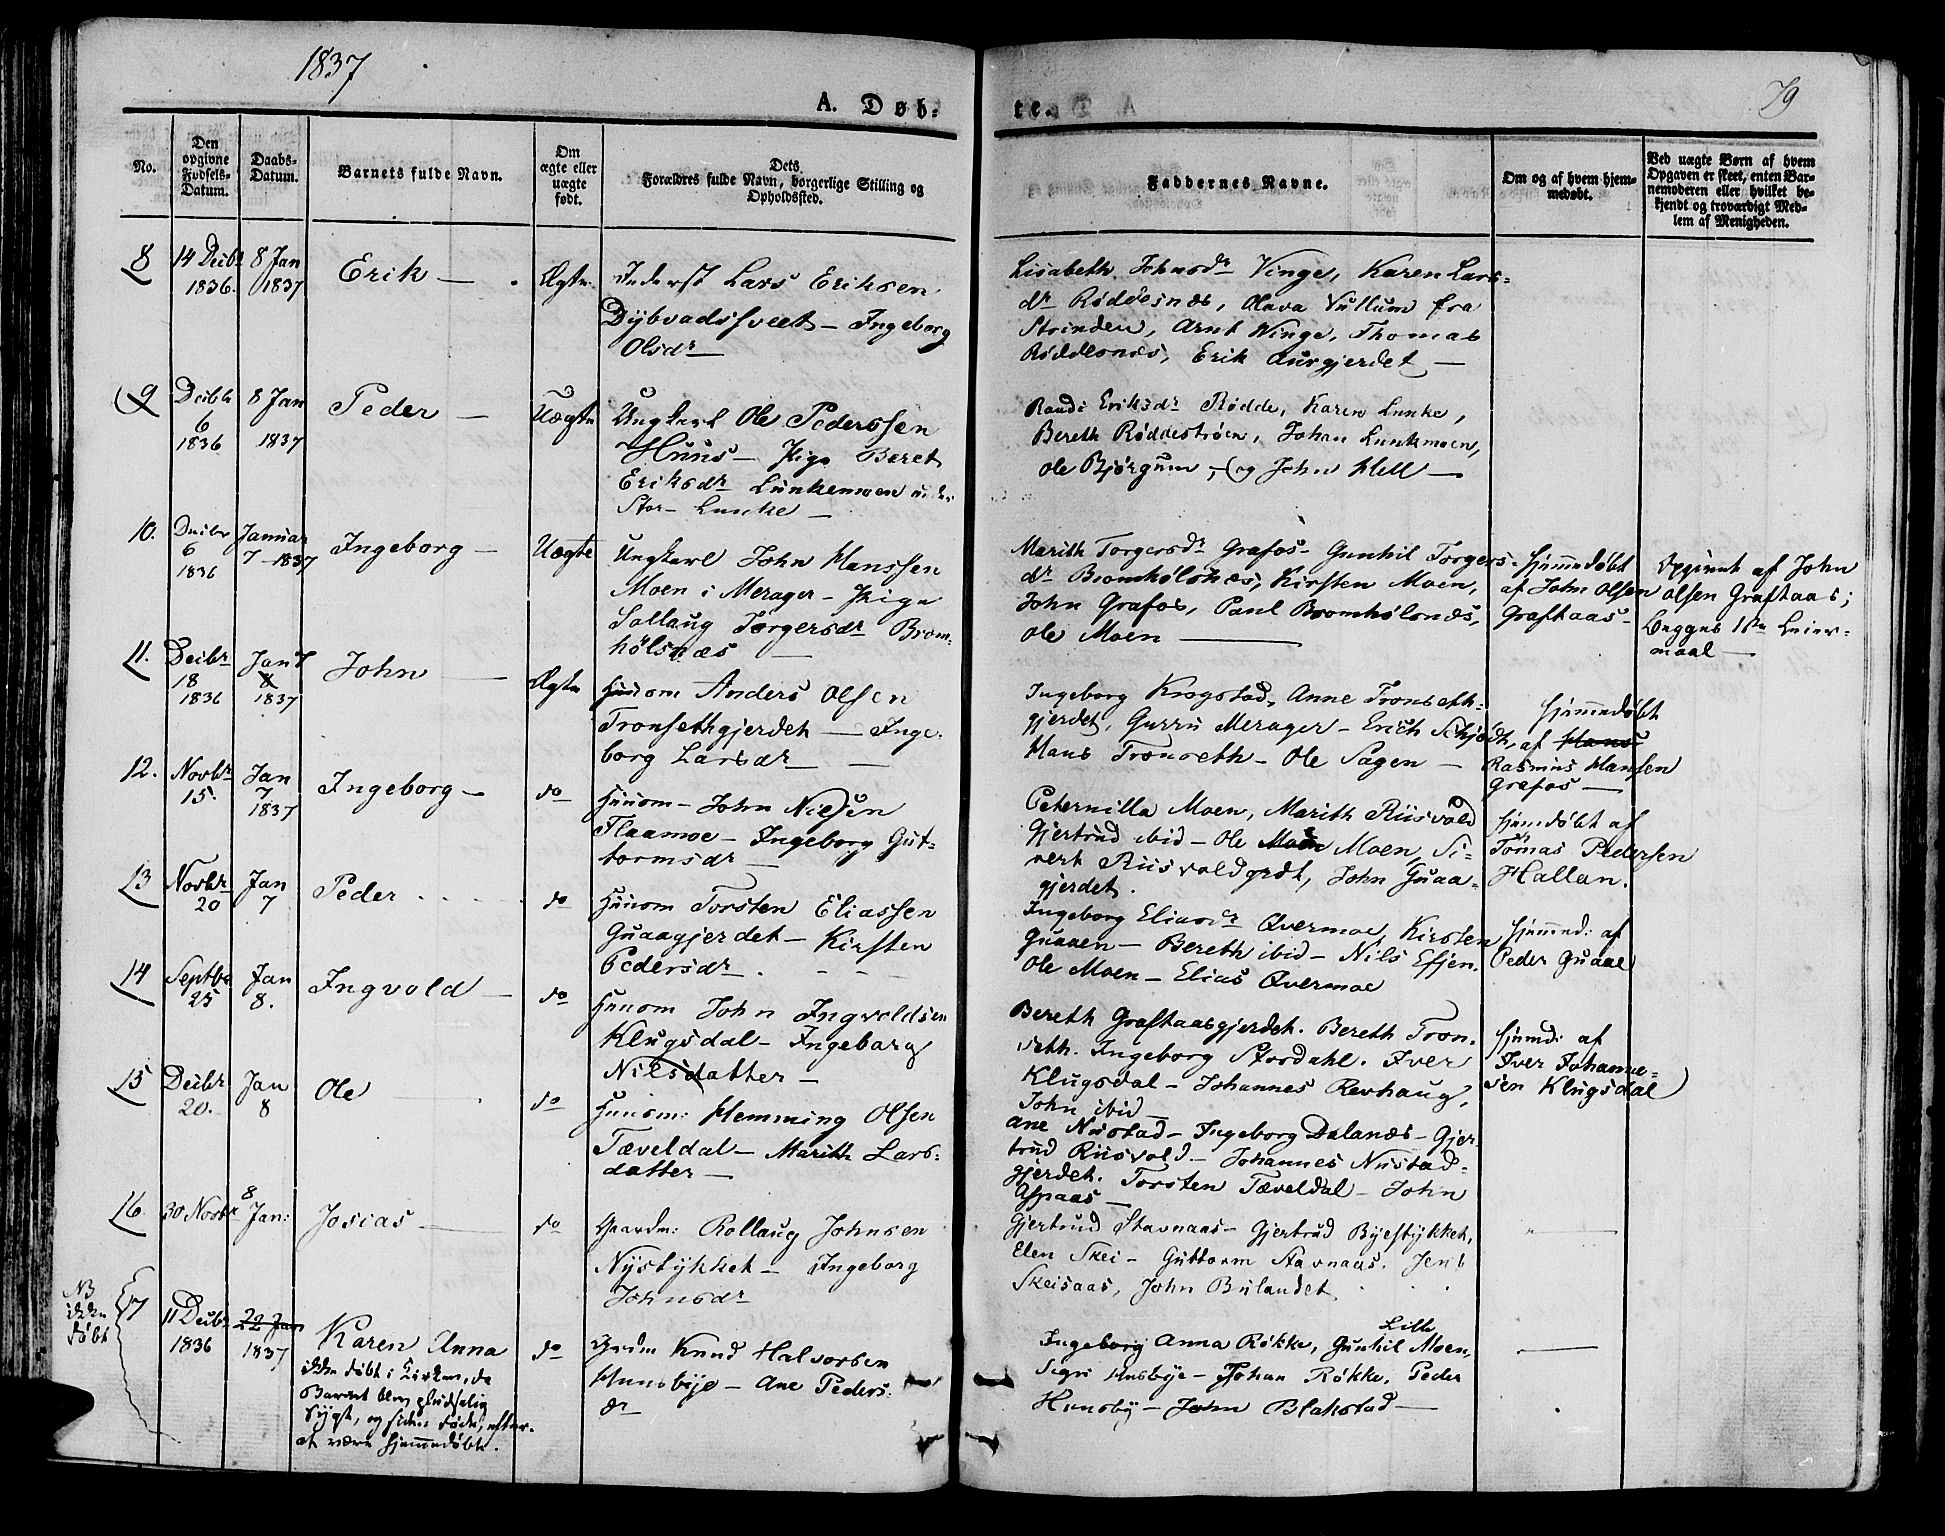 1837
79
A. Døb-
te.
No.
Den
opgivne
Fødsels-
Datum.
Daabs-
Datum.
Barnets fulde Navn.
Om
ægte eller
uægte
født.
Dets
Forældres fulde Navn, borgerlige Stilling og
Opholdssted.
Faddernes Navne.
Om og af hvem hjem-
medøbt.
Ved uægte Børn af hvem
Opgaven er skeet, enten Bar-
nemoderen eller hvilket be-
kjendt og troværdigt Med-
lem af Menigheden.
8
14 Decbr
1836.
8 Jan
1837
Erik —
Ægte
Inderst Lars Eriksen
Dybvadssveet — Ingeborg
Olsdr —
Lisabeth Johnsdr Vinge, Karen Lars-
dr Røddesnæs, Olava Vullum fra
Strinden, Arnt Winge, Thomas
Røddesnæs, Erik Aurgjerdet —
9
Decbr
6
1836
8 Jan
1837
Peder —
Uægte
Ungkarl Ole Pederssen
Huus — Pige Beret
Eriksdr Lunkemoen under
Stor-Lunke —
Randi Eriksdr Rødde, Karen Lunke,
Bereth Røddestrøen, Johan Lunkmoen,
Ole Bjørgum, og John Hell —
10.
Decbr
6
1836
Januar
7 - 1837
Ingeborg —
Uægte
Ungkarl John Hanssen
Moen i Merager — Pige
Sollaug Torgersdr Brom-
hølsnæs —
Marith Torgersdr Grafos — Gunhil Torgers-
dr Bromhølsnæs, Kirsten Moen,
John Grafos, Paul Bromhølsnæs,
Ole Moen —
Hjemmedøbt
af John Olsen
Graftaas —
Opgivet af John
Olsen Graftaas;
Begges 1ste Leier-
maal —
11.
Decbr
18
1836
Jan 7
8
1837
John —
Ægte
Huusm Anders Olsen
Tronsethgjerdet — Inge-
borg Larsdr —
Ingeborg Krogstad, Anne Tronseth-
gjerdet, Gurru Merager — Erich Schjødt,
Hans Tronseth — Ole Sagen —
Hjemmedøbt
af Hans
Rasmus Hansen
Grafos —
12.
Novbr
15.
Jan
7
1837
Ingeborg —
do
Huusm — John Nielsen
Flaamoe — Ingeborg Gut-
tormsdr —
Peternilla Moen, Marith Riisvold
Gjertrud ibid — Ole Moen, Si-
vert Riisvoldgrdt, John Guaa-
gjerdet.
Hjemdøbt af
Tomas Pedersen
Hallan.
13
Novbr
20
Jan
7
Peder
do
Huusm Torsten Eliassen
Guaagjerdet — Kirsten
Pedersdr.
Ingeborg Eliasdr Øvermoe, Kirsten
Guaaen — Bereth ibid — Nils Efjen.
Ole Moen — Elias Øvermoe
Hjemmed: af
Peder Guaae
14
Septbr
25
Jan
8.
Ingvold —
do
Huusm John Ingvoldsen
Klugsdal — Ingeborg
Nilsdatter —
Bereth Graftaasgjerdet. Bereth Tron-
seth. Ingeborg Stordahl. Iver
Klugsdal — Johannes Revhaug,
John ibid
Hjemd: af
Iver Johanne-
sen Klugsdal
15
Decbr
20.
Jan
8
Ole
do
Huusm: Hemming Olsen
Tæveldal — Marith Lars-
datter —
Ane Nustad — Ingeborg Dalanæs — Gjer-
trud Riisvold — Johannes Nustad-
gjerdet. Torsten Tæveldal — John
Aspaas —
16
30 Novbr
8
Jan:
Josias —
do
Gaardm: Rollaug Johnsen
Nystykket — Ingeborg
Johnsdr
Gjertrud Stavnaas — Gjertrud Byestykket,
Elen Skei — Guttorm Stavnaas. Jens
Skeisaas, John Bulandet
NB
ikke
døbt
17
11 Decbr
1836
22 Jan
1837
Karen Anna
ikke døbt i Kirken, da
Barnet blev pludselig
Sygt, og siden døde, efter
at være hjemmedøbt.
do
Gaardm Knud Halvorsen
Hunsbye — Ane Peders-
dr
Ingeborg Anna Røkke, Gunhil Lille Moen,
Sigri Hunsbye — Johan Røkke, Peder
Hunsby — John Blakstad —